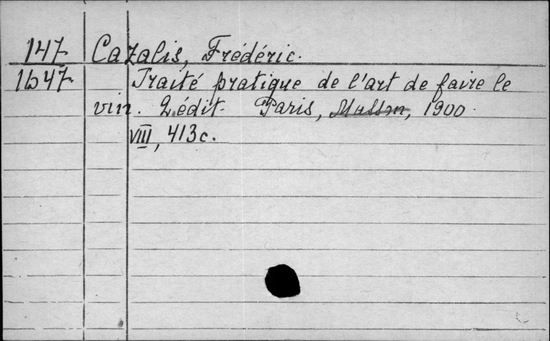 147 Cazalis, Frédéric.
1647 Traité pratique de l'art de faire le
vin. 2.édit. Paris, Masson, 1900.
VIII, 413c.